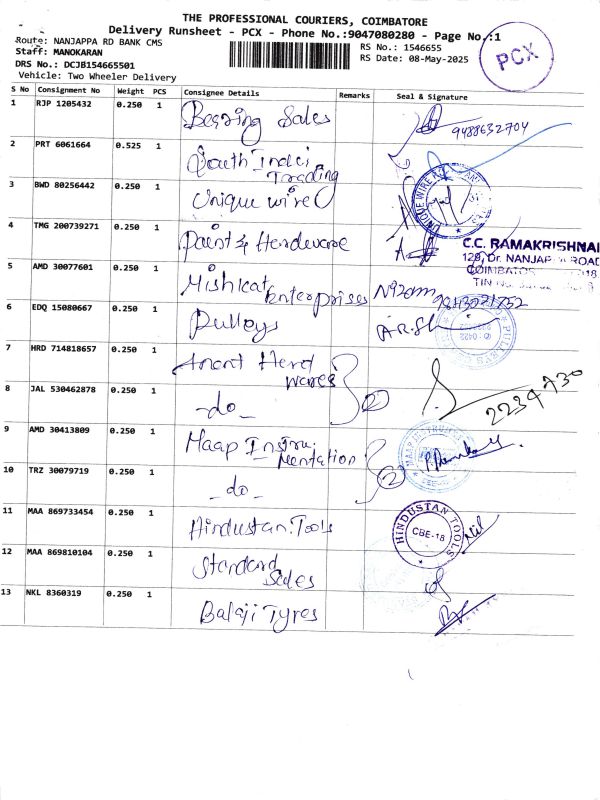 THE PROFESSIONAL COURIERS, COIMBATORE
Delivery Runsheet - PCX - Phone No.:9047080280 - Page No.:1
Route: NANJAPPA RD BANK CMS
RS No.: 1546655
Staff: MANOKARAN
RS Date: 08-May-2025
DRS No.: DCJB154665501
Vehicle: Two Wheeler Delivery
PCX
S No Consignment No Weight PCS Consignee Details Remarks Seal & Signature
1 RJP 1205432 0.250 1 Bearing Sales 9488632704
2 PRT 6061664 0.525 1 South Indei Trading
3 BWD 80256442 0.250 1 Unique wire
4 TMG 200739271 0.250 1 Paint & Hardware
C.C. RAMAKRISHNA
129, Dr. NANJAPPA ROAD
COIMBATORE 18
5 AMD 30077601 0.250 1 Mishkat Enterprises
6 EDQ 15080667 0.250 1 Pulleys
7 HRD 714818657 0.250 1 Anant Hard wares 2
8 JAL 530462878 0.250 1 -do- 2234730
9 AMD 30413809 0.250 1 Maap Instru. Mentation 2
10 TRZ 30079719 0.250 1 -do-
11 MAA 869733454 0.250 1 Hindustan.Tools
HINDUSTAN TOOLS
CBE-18
12 MAA 869810104 0.250 1 Standard Sales
13 NKL 8360319 0.250 1 Balaji Tyres